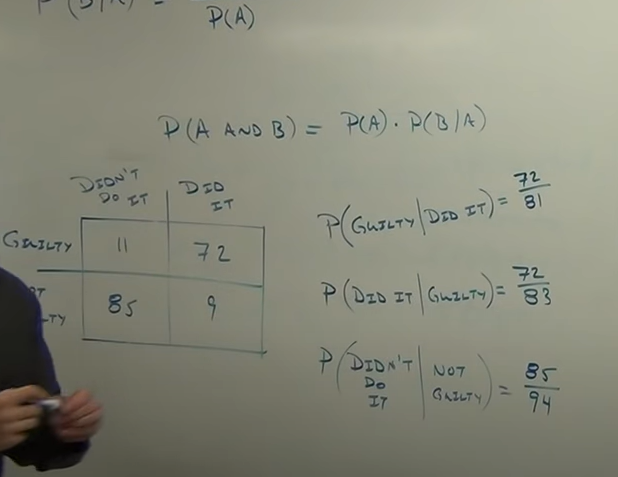 P(A)
P(A AND B) = P(A) · P(B/A)
DIDN'T DO IT
DID IT
GUILTY 11 72
85 9
P(GUILTY | DID IT) = 72/81
P(DID IT | GUILTY) = 72/83
P(DIDN'T DO IT | NOT GUILTY) = 85/94